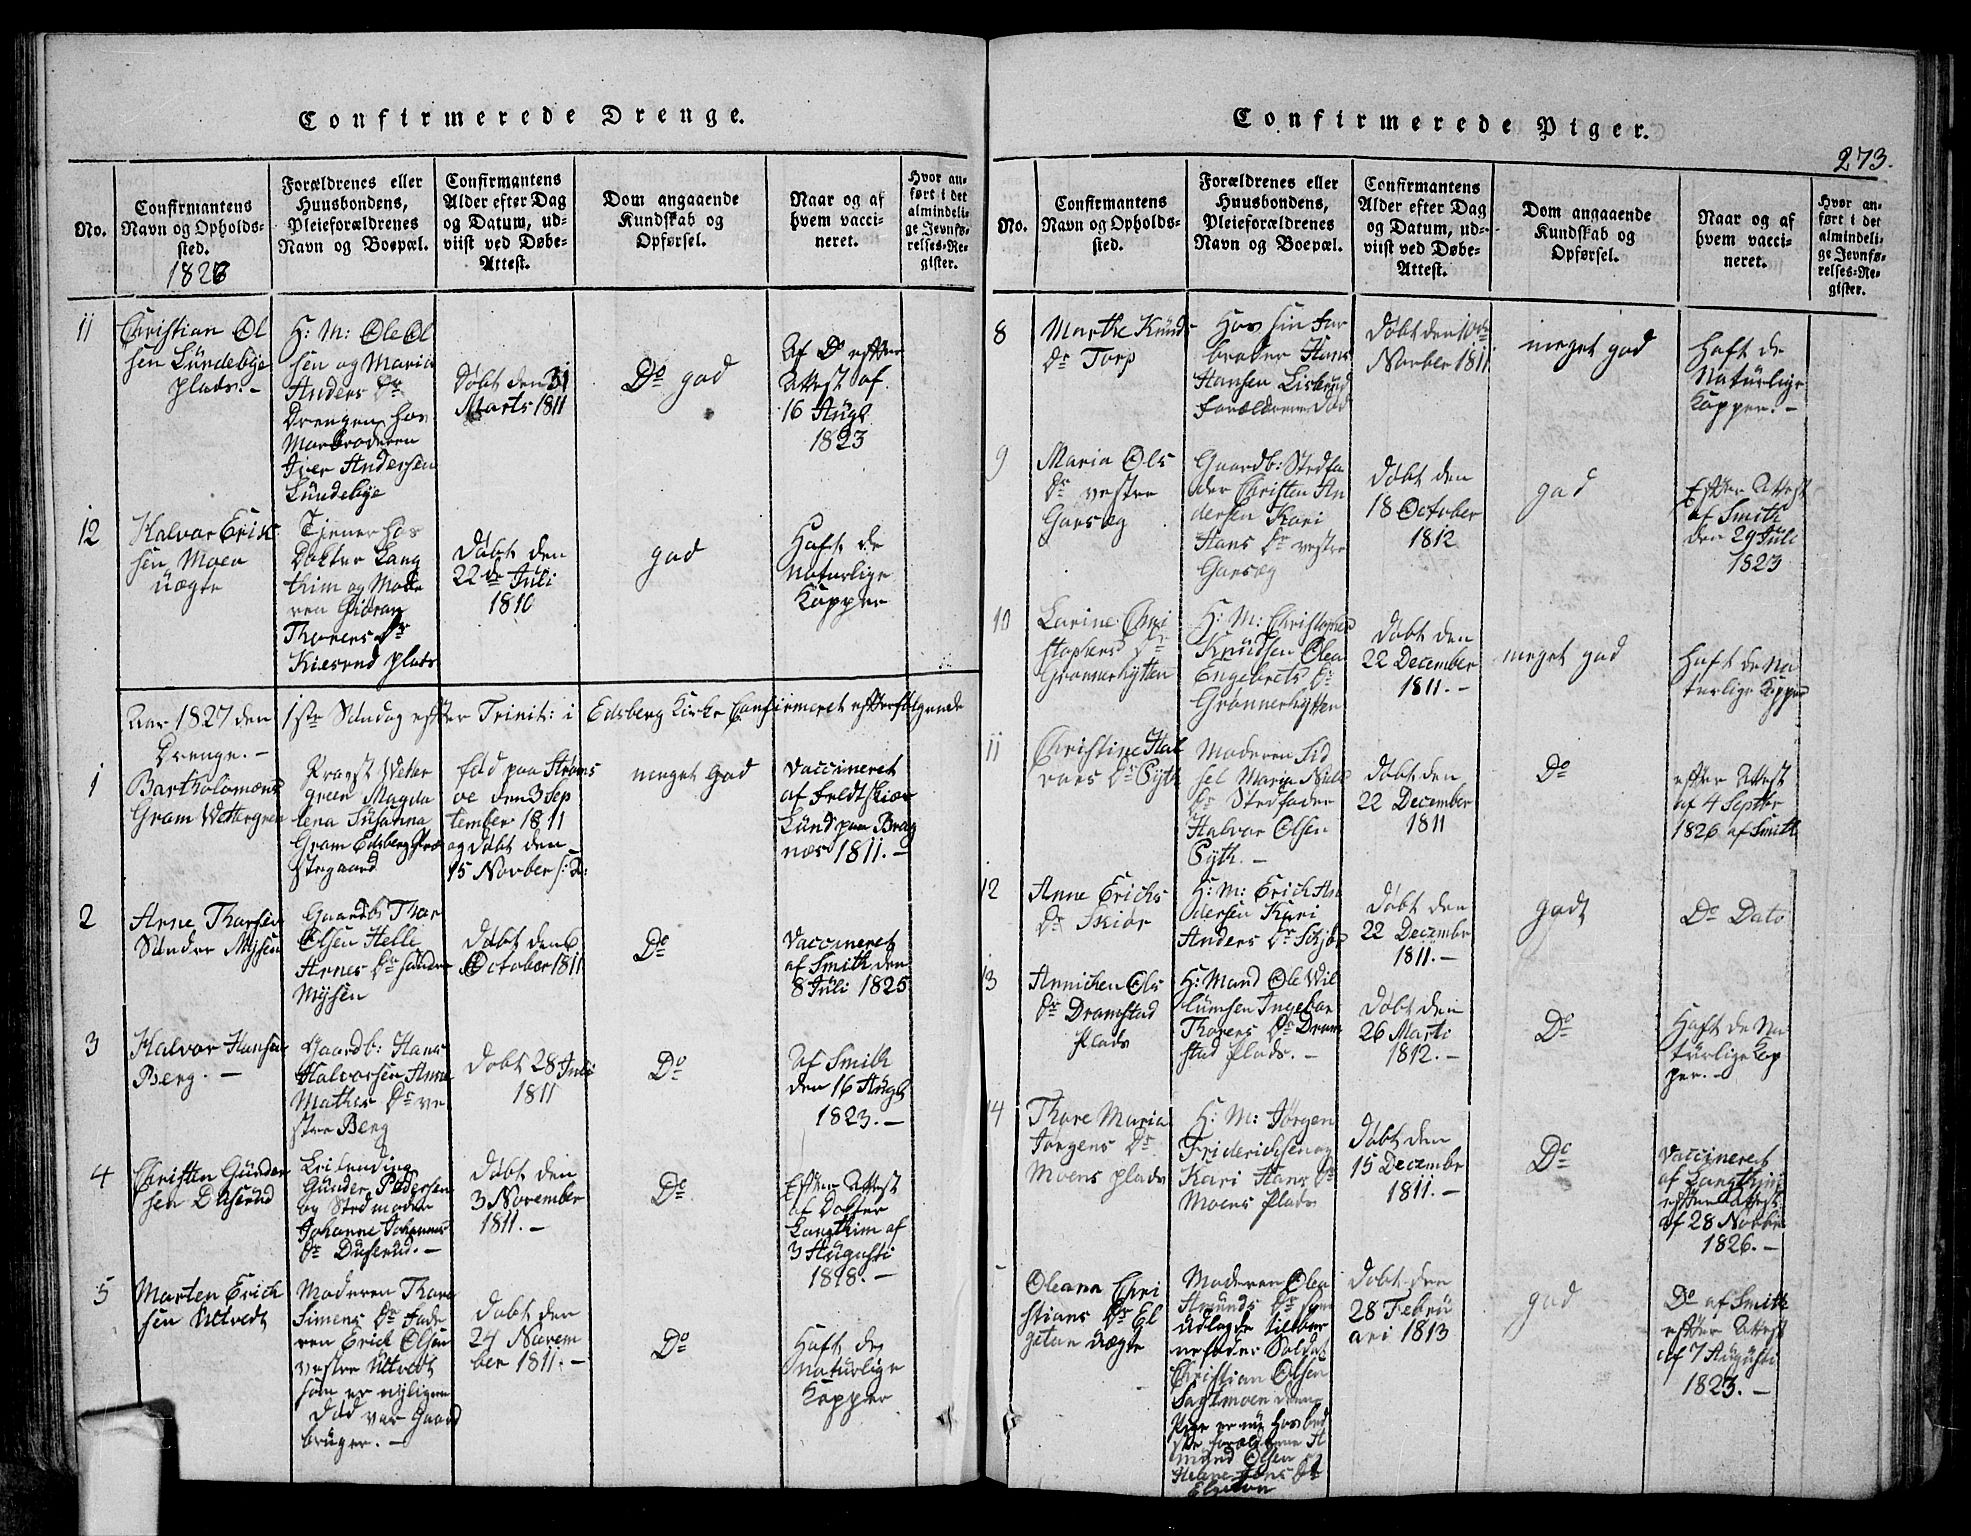 Confirmerede Drenge.
No.
Confirmantens
Navn og Opholds-
sted.
1826
Forældrenes eller
Huusbondens,
Pleieforældrenes
Navn og Boepæl.
Confirmantens
Alder efter Dag
og Datum, ud-
viist ved Døbe-
Attest.
Dom angaaende
Kundskab og
Opførsel.
Naar og af
hvem vacci-
neret.
Hvor an-
ført i det
almindeli-
ge Jevnfø-
relses-Re-
gister.
11
Christian Ol
sen Lündebye
plads. -
H: M: Ole Ol
sen og Maria
Anders Dr
Drengen hos
Morbroderen
Iver Andersen
Lündebye
Døbt den 31
Marts 1811
Do god
Af Do efter
Attest af
16 Augt
1823
12
Halvor Erick
sen Moen
Uægte
Tjener hos
Doktor Lang
thim og Mode
ren
Thorers Dr
plads
Døbt den
22de Juli
1810
god
Haft de
Naturlige
Kopper
Aar 1827 den 1ste Søndag efter Trinit: i Edsberg Kirke Confirmeret efterfølgende
Drenge. -
1
Bartholomæus
Gram Wettergren
Provst Wetter
green Magda
lena Susanna
Gram Edsberg Præ
stegaard
fød paa Strøms
øe den 3 Sep
tember 1811
og døbt den
15 Novber s: A:
meget God
Vaccineret
af Feldtskiær
Lünd paa Brag
næs 1811. -
2
Arne Thorsen
Søndre Mysen
Gaardb Thor
Olsen Helle
Arnes Dr søndre
Mysen
Døbt den 6
October 1811
Do
Vaccineret
af Smith den
8 Juli 1825
3
Halvor Hansen
Berg. -
Gaardb: Hans
Halvorsen Anne
Mathis Dr ve
stre Berg
Døbt 28 Juli
1811
Do
Af Smith
den 16 Augt
1823. -
4
Christen Günder
sen Duserud
Günder Pedersen
og Stedmoder
Johanne Johannes
Dr Duserud. -
Døbt den
3 November
1811. -
Do
Efter Attest
af Doktor
Langthim af
3 Augusti
1818. -
5
Morten Erich
sen Ultvedt
Moderen Thore
Simens Dr Fade
ren Erick Olsen
vestre Ultvedt
som er nyligen
død var Gaard
brüger. -
Døbt den
24 Novem
ber 1811. -
Do
Haft de
naturlige
Kopper
Confirmerede Piger.
273.
No.
Confirmantens
Navn og Opholds-
sted.
Forældrenes eller
Huusbondens,
Pleieforældrenes
Navn og Boepæl.
Confirmantens
Alder efter Dag
og Datum, ud-
viist ved Døbe-
Attest.
Dom angaaende
Kundskab og
Opførsel.
Naar og af
hvem vacci-
neret.
Hvor an-
ført i det
almindeli-
ge Jevnfø-
relses-Re-
gister.
8
Marthe Knüds
Dr Torp
Hos sin Far
broder Hans
Hansen
Forældrene død
Døbt den
Novber 1811
meget god
Haft de
Naturlige
Kopper. -
9
Maria Ols
Dr vestre
Garseg
Gaardb: Stedfa
der Christen An
dersen Kari
Hans Dr vestre
Garseg
Døbt den
18 October
1812
god
Efter Attest
af Smith
den 29 Juli
1823
10
Larine Chri
stophers Dr
Grønnerhytten
H: M: Christopher
Knüdsen Olea
Engebrets Dr
Grønnerhytten
Døbt den
22 December
1811. -
meget god
Haft de Na
turlige Kopper
11
Christine Hal
vors Dr
Moderen Sid
sel Maria Niels
Dr Stedfader
Halvor Olsen
Døbt den
22 December
1811
Do
efter Attest
af 4 Septbr
1826 af Smith
12
Anne Erichs
Dr Skiør
H: M: Erich An
dersen Kari
Anders Dr
Døbt den
22 Decembr
1811. -
godt
Do Dato
13
Annichen Ols
Dr Dramstad
Plads
H: Mand Ole Wil
lumsen Ingebor
Thorers Dr Dram
stad Plads. -
Døbt den
26 Marti
1812. -
Do
Haft de Na
türlige Kop
per. -
14
Thore Maria
Jørgens Dr
Moens plads
H: M: Jørgen
Friderichsen og
Kari Hans Dr
Moens Plads
Døbt den
15 Decembr
1811. -
Do
Vaccineret
af Langthim
efter Attest
af 28 Novbr
1826. -
Oleana Chri
stians Dr El
getun Uægte
Moderen Olea
Amunds Dr som
Udlagde til bar
nefader Soldat
Christian Olsen
Sagtmoen denne
Pige er nu hos bed
ste forældrene A
mund Olsen
Døbt den
28 Febru
ari 1813
god
Do af Smith
efter Attest
af 7 Augusti
1823. -